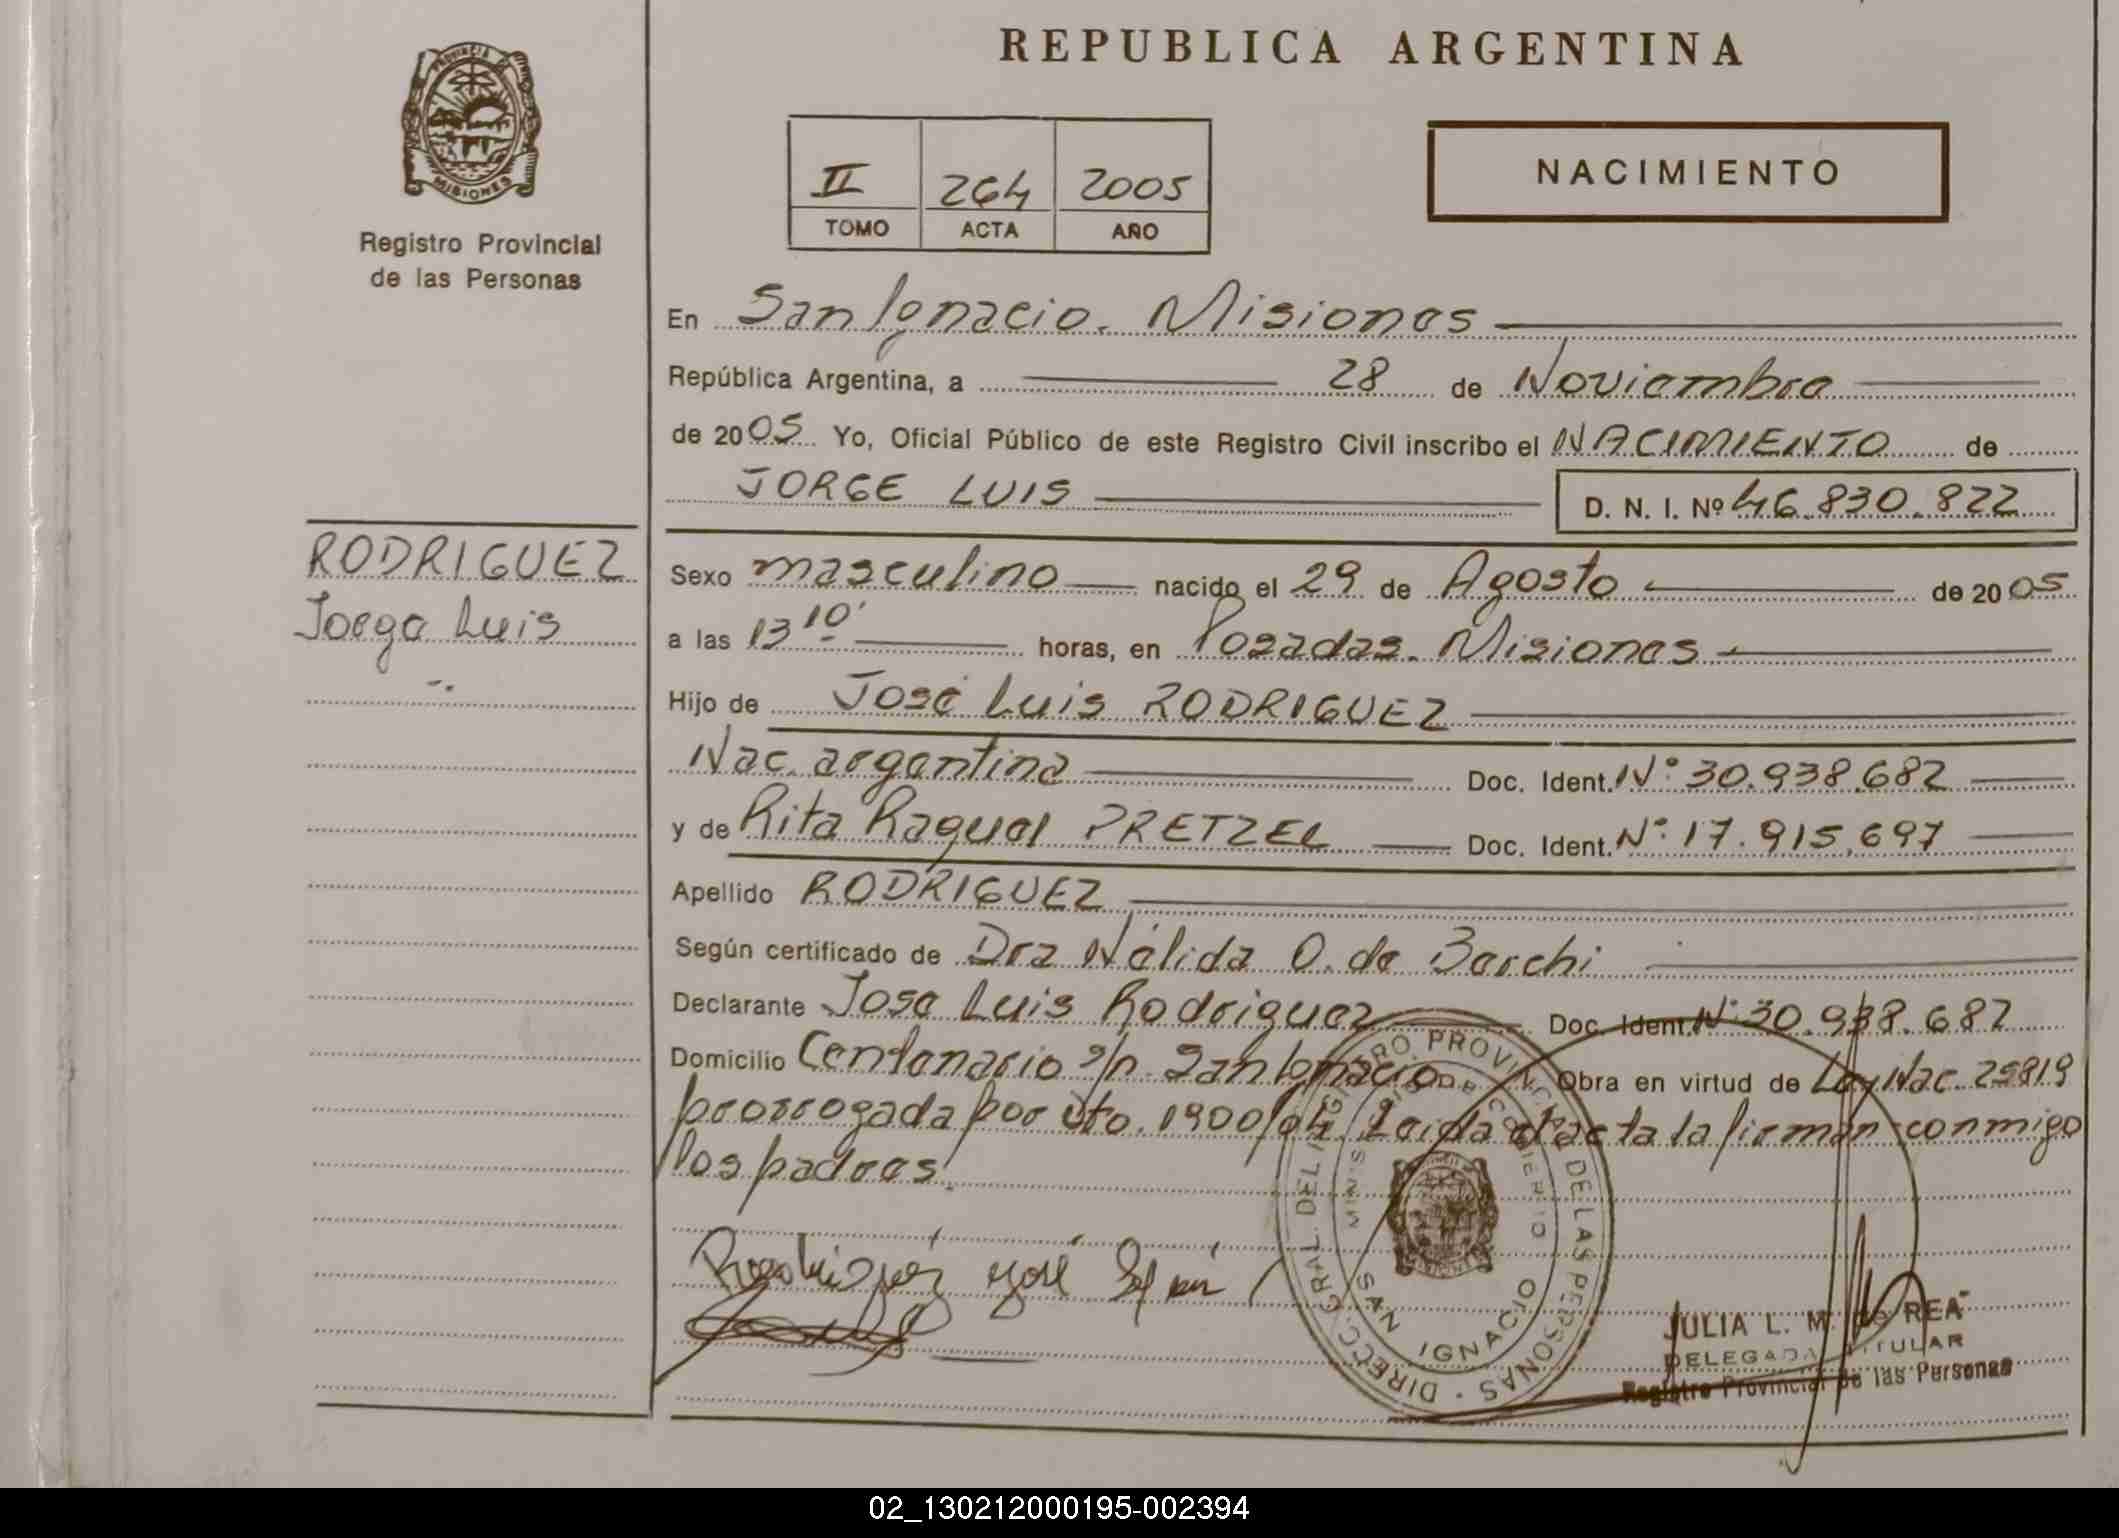 REPUBLICA ARGENTINA
PROVINCIA DE
MISIONES
Registro Provincial
de las Personas
II 264 2005
TOMO ACTA AÑO
NACIMIENTO
En San Ignacio. Misiones
República Argentina, a 28 de Noviembre
de 2005 Yo, Oficial Público de este Registro Civil inscribo el NACIMIENTO de
JORGE LUIS D. N. I. Nº 46.830.822
RODRIGUEZ
Jorge Luis
Sexo masculino nacido el 29 de Agosto de 2005
a las 13 10' horas, en Posadas. Misiones
Hijo de José Luis RODRIGUEZ
Nac. argentina Doc. Ident. Nº 30.938.682
y de Rita Raquel PRETZEL Doc. Ident. Nº 17.915.697
Apellido RODRIGUEZ
Según certificado de Dra Nélida O. de Barchi
Declarante Jose Luis Rodriguez Doc. Ident. Nº 30.938.682
Domicilio Centenario s/n. San Ignacio Obra en virtud de Ley Nac. 25819
prorrogada por Dto. 1900/04. Leida el acta la firman conmigo
los padres.
Rodriguez José Luis
DIRECC. GRAL. DEL REGISTRO PROVINCIAL DE LAS PERSONAS
MINISTERIO DE GOBIERNO
SAN IGNACIO
JULIA L. M. de REA
DELEGADA TITULAR
Registro Provincial de las Personas
02_130212000195-002394